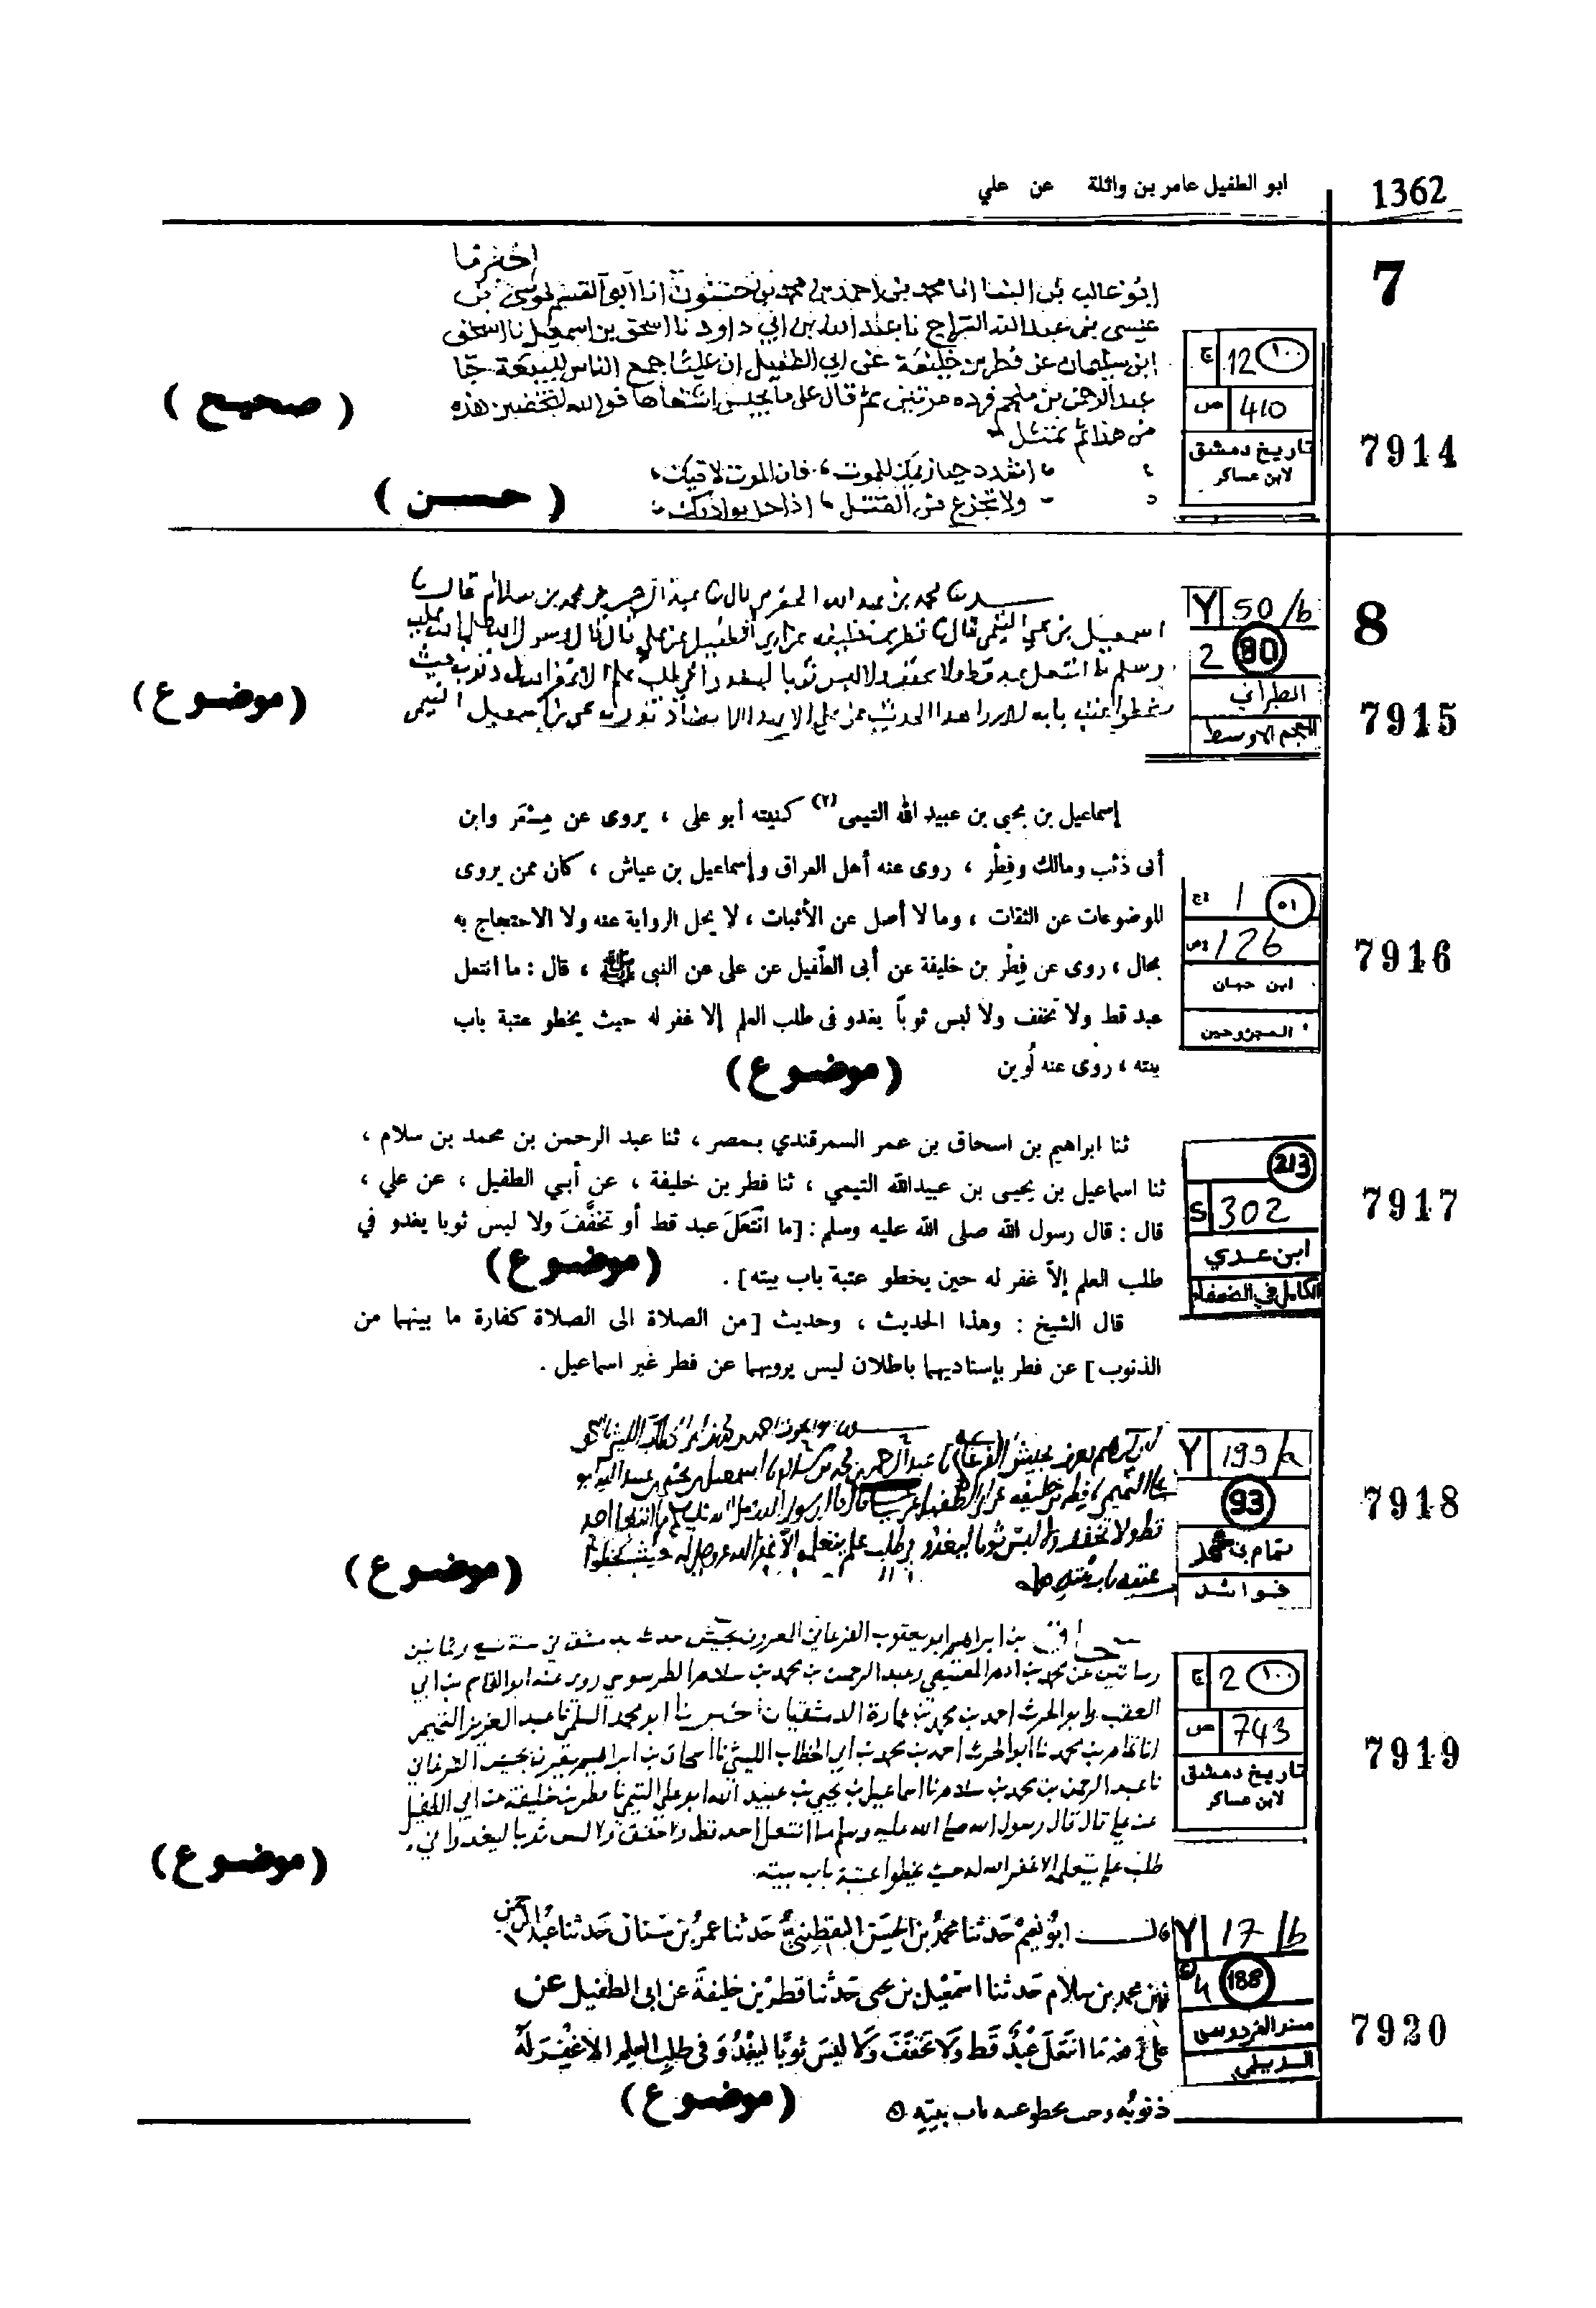 1362
ابو الطفيل عامر بن واثلة عن علي
7
اخبرنا
ابو غالب بن البنا انا محمد بن احمد بن محمد بن حسنون انا ابو القسم موسى بن
عيسى بن عبد الله السراج نا عبد الله بن ابي داود نا اسحق بن اسمعيل نا اسحق
ابن سليمان عن فطر بن خليفة عن ابي الطفيل ان عليا جمع الناس للبيعة جا
عبد الرحمن بن ملجم فرده مرتين ثم قال على ما يحبس اشقاها فوالله لتخضبن هذه
من هذا ثم تمثل
اشدد حيازيمك للموت فان الموت لاقيك
ولا تجزع من القتل اذا حل بواديك
( صحيح )
( حسن )
ج 12 ١٠٠
ص 410
تاريخ دمشق
لابن عساكر
7914
8
حدثنا محمد بن عبد الله الحضرمي قال نا عبد الرحمن بن محمد بن سلام قال نا
اسمعيل بن يحيى التيمي قال نا فطر بن خليفه عن ابي الطفيل عن علي قال قال رسول الله صلى الله عليه
وسلم ما انتعل عبد قط ولا تخفف ولا لبس ثوبا ليغدو في طلب علم الا غفر الله له ذنوبه حيث
يخطو عتبة بابه لا يروى هذا الحديث عن علي الا بهذا الاسناد تفرد به اسمعيل التيمي
( موضوع )
Y 50/b
2 80
الطبراني
المعجم الاوسط
7915
إسماعيل بن يحيى بن عبيد الله التيمى (٢) كنيته أبو على ، يروى عن مِسْعَر وابن
أبى ذئب ومالك وفِطْر ، روى عنه أهل العراق وإسماعيل بن عياش ، كان ممن يروى
الموضوعات عن الثقات ، وما لا أصل عن الأثبات ، لا يحل الرواية عنه ولا الاحتجاج به
بحال ، روى عن فِطْر بن خليفة عن أبى الطّفيل عن على عن النبى ﷺ ، قال : ما انتعل
عبد قط ولا تخفف ولا لبس ثوباً يغدو فى طلب العلم إلا غفر له حيث يخطو عتبة باب
بيته ، روى عنه لُوين
( موضوع )
ج 1 ٥١
ص 126
ابن حبان
المجروحين
7916
ثنا ابراهيم بن اسحاق بن عمر السمرقندي بمصر ، ثنا عبد الرحمن بن محمد بن سلام ،
ثنا اسماعيل بن يحيى بن عبيدالله التيمي ، ثنا فطر بن خليفة ، عن أبي الطفيل ، عن علي ،
قال : قال رسول الله صلى الله عليه وسلم : [ ما انْتَعَلَ عبد قط أو تخفَّفَ ولا لبس ثوبا يغدو في
طلب العلم إلاّ غفر له حين يخطو عتبة باب بيته ] .
( موضوع )
قال الشيخ : وهذا الحديث ، وحديث [ من الصلاة الى الصلاة كفارة ما بينهما من
الذنوب ] عن فطر بإسناديهما باطلان ليس يرويهما عن فطر غير اسماعيل .
213
S 302
ابن عدي
الكامل في الضعفاء
7917
عبد الرحمن بن محمد بن سلام نا اسمعيل بن يحيى بن عبيد الله ابو
علي التيمي نا فطر بن خليفه عن ابي الطفيل عن علي قال قال رسول الله صلى الله عليه وسلم ما انتعل احد
قط ولا تخفف ولا لبس ثوبا ليغدو في طلب علم يتعلمه الا غفر الله عز وجل له حيث يخطو
عتبة باب بيته
( موضوع )
Y 199/a
93
تمام بن محمد
فوائد
7918
اسحاق بن ابراهيم ابو يعقوب الفرغاني المعروف بجيش حدث بدمشق في سنة تسع وثمانين
ومائتين عن محمد بن ادم المصيصي وعبد الرحمن بن محمد بن سلام الطرسوسي روى عنه ابو القاسم بن ابي
العقب وابو الحرث احمد بن محمد بن عمارة الدمشقيان اخبرنا ابو محمد السلمي نا عبد العزيز التميمي
انا تمام بن محمد نا ابو الحرث احمد بن محمد بن ابي الخطاب الليثي نا اسحاق بن ابراهيم يعرف بجيش الفرغاني
نا عبد الرحمن بن محمد بن سلام نا اسماعيل بن يحيى بن عبيد الله ابو علي التيمي نا فطر بن خليفة عن ابي الطفيل
عن علي قال قال رسول الله صلى الله عليه وسلم ما انتعل احد قط ولا تخفف ولا لبس ثوبا ليغدوا في
طلب علم يتعلمه الا غفر الله له حيث يخطوا عتبة باب بيته
( موضوع )
ج 2 ١٠٠
ص 743
تاريخ دمشق
لابن عساكر
7919
قال ابو نعيم حدثنا محمد بن الحسن اليقطيني حدثنا عمر بن سنان حدثنا عبد الرحمن
بن محمد بن سلام حدثنا اسمعيل بن يحيى حدثنا فطر بن خليفة عن ابى الطفيل عن
على رضه ما انتعل عبد قط ولا تخفف ولا لبس ثوبا ليغدو فى طلب العلم الا غفر له
ذنوبه وحيث يخطو عتبه باب بيته
( موضوع )
Y 17/b
4 188
مسند الفردوس
الديلمي
7920